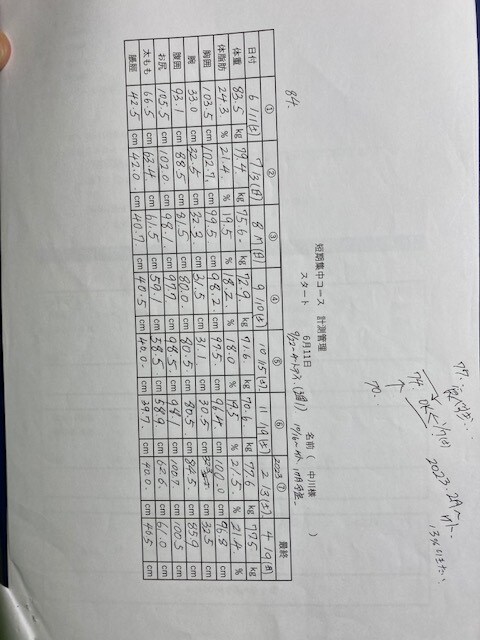 短期集中コース　計測管理
スタート　6月11日　名前（　中川様　）
84.
①　②　③　④　⑤　⑥　2023 ⑦　最終
日付　6/11(土)　7/3(日)　9/10(土)　10/15(土)　11/19(土)　2/3(土)
体重　83.5 kg　79.4 kg　75.6 kg　72.9 kg　71.6 kg　70.6 kg　77.6 kg　77.5 kg
体脂肪　24.3 %　21.4 %　19.5 %　18.2 %　18.0 %　19.5 %　21.5 %　21.4 %
胸囲　103.5 cm　102.7 cm　99.5 cm　98.2 cm　97.5 cm　96.4 cm　100.0 cm　96.8 cm
腕　33.0 cm　32.5 cm　32.3 cm　31.5 cm　31.1 cm　30.5 cm　cm　32.5 cm
腹囲　93.1 cm　88.5 cm　81.5 cm　80.0 cm　80.5 cm　80.5 cm　84.5 cm　85.9 cm
お尻　105.5 cm　102.0 cm　98.1 cm　97.9 cm　98.5 cm　98.1 cm　100.7 cm　100.5 cm
太もも　66.5 cm　63.4 cm　61.5 cm　59.1 cm　58.5 cm　58.9 cm　62.6 cm　61.0 cm
脹脛　42.5 cm　42.0 cm　40.7 cm　40.5 cm　40.0 cm　39.7 cm　40.0 cm　40.5 cm
77.
74.
70.
2023.2月〜